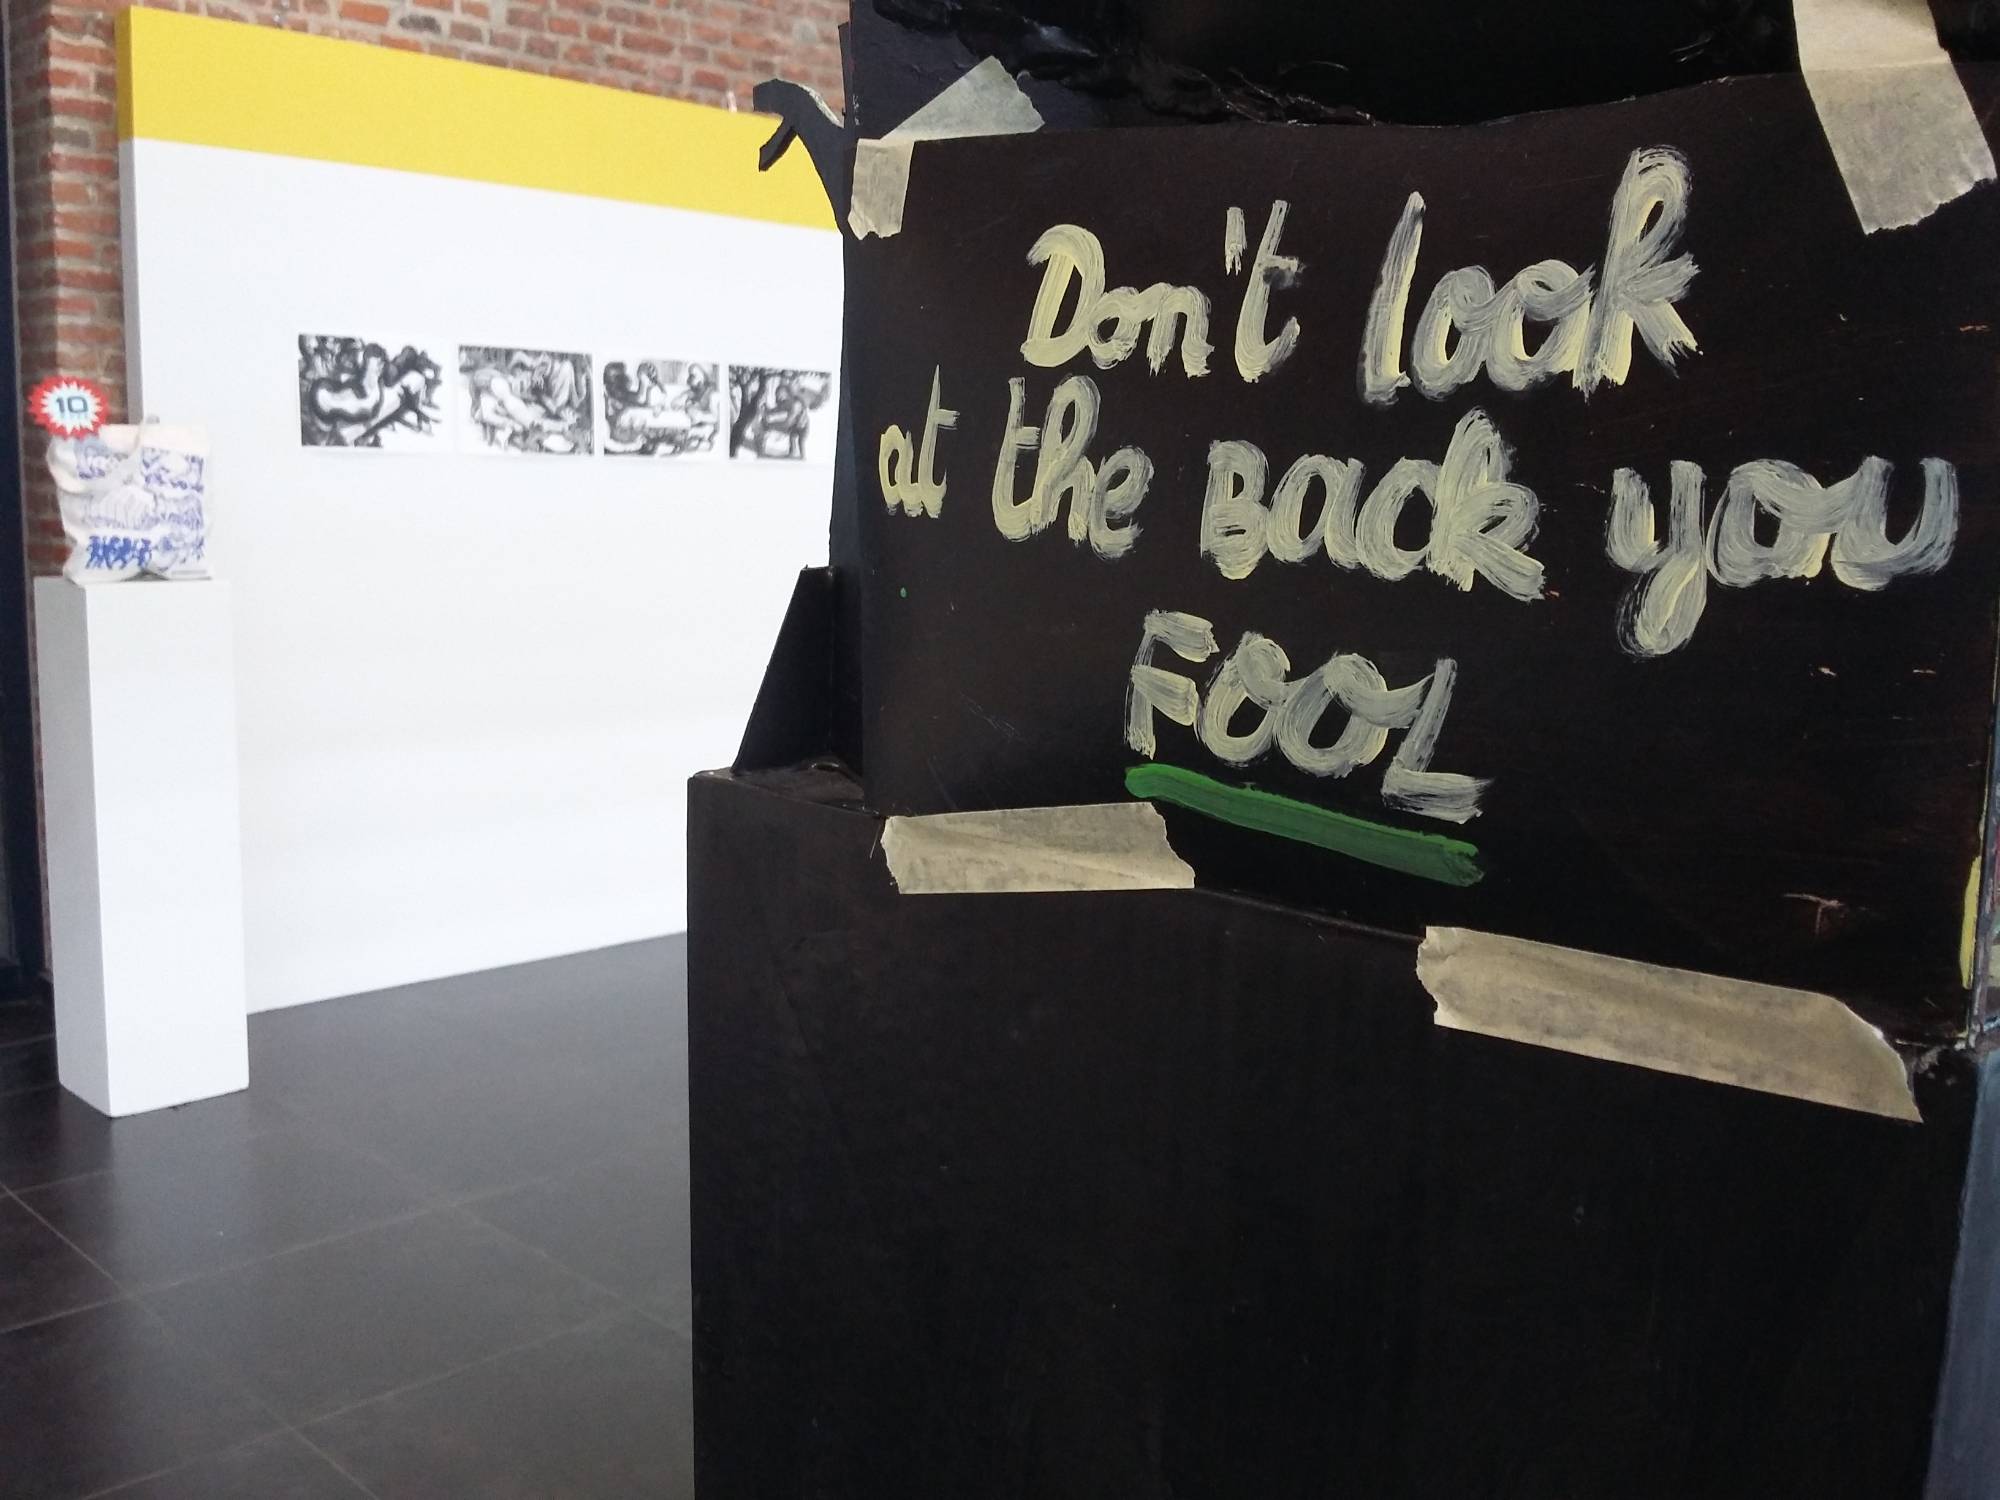 Don't look
at the Back you
FOOL
10